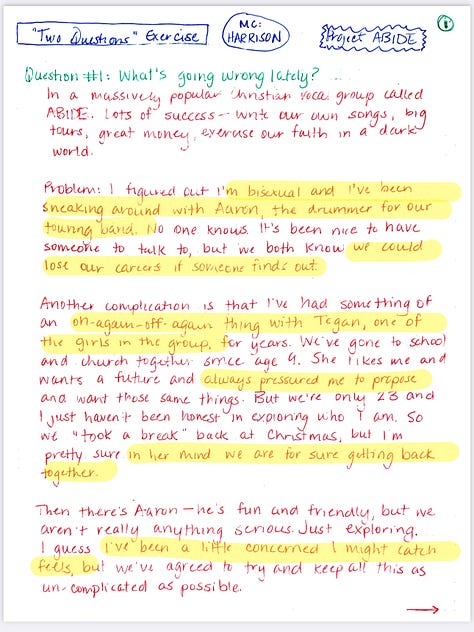 "Two Questions" Exercise
MC:
HARRISON
Project ABIDE
1
Question #1: What's going wrong lately?
In a massively popular Christian vocal group called
ABIDE. Lots of success - write our own songs, big
tours, great money, exercise our faith in a dark
world.
Problem: I figured out I'm bisexual and I've been
sneaking around with Aaron, the drummer for our
touring band. No one knows. It's been nice to have
someone to talk to, but we both know we could
lose our careers if someone finds out.
Another complication is that I've had something of
an on-again-off-again thing with Tegan, one of
the girls in the group, for years. We've gone to school
and church together since age 9. She likes me and
wants a future and always pressured me to propose
and want those same things. But we're only 23 and
I just haven't been honest in exploring who I am. So
we "took a break" back at Christmas, but I'm
pretty sure in her mind we are for sure getting back
together.
Then there's Aaron - he's fun and friendly, but we
aren't really anything serious. Just exploring.
I guess I've been a little concerned I might catch
feels, but we've agreed to try and keep all this as
un-complicated as possible.